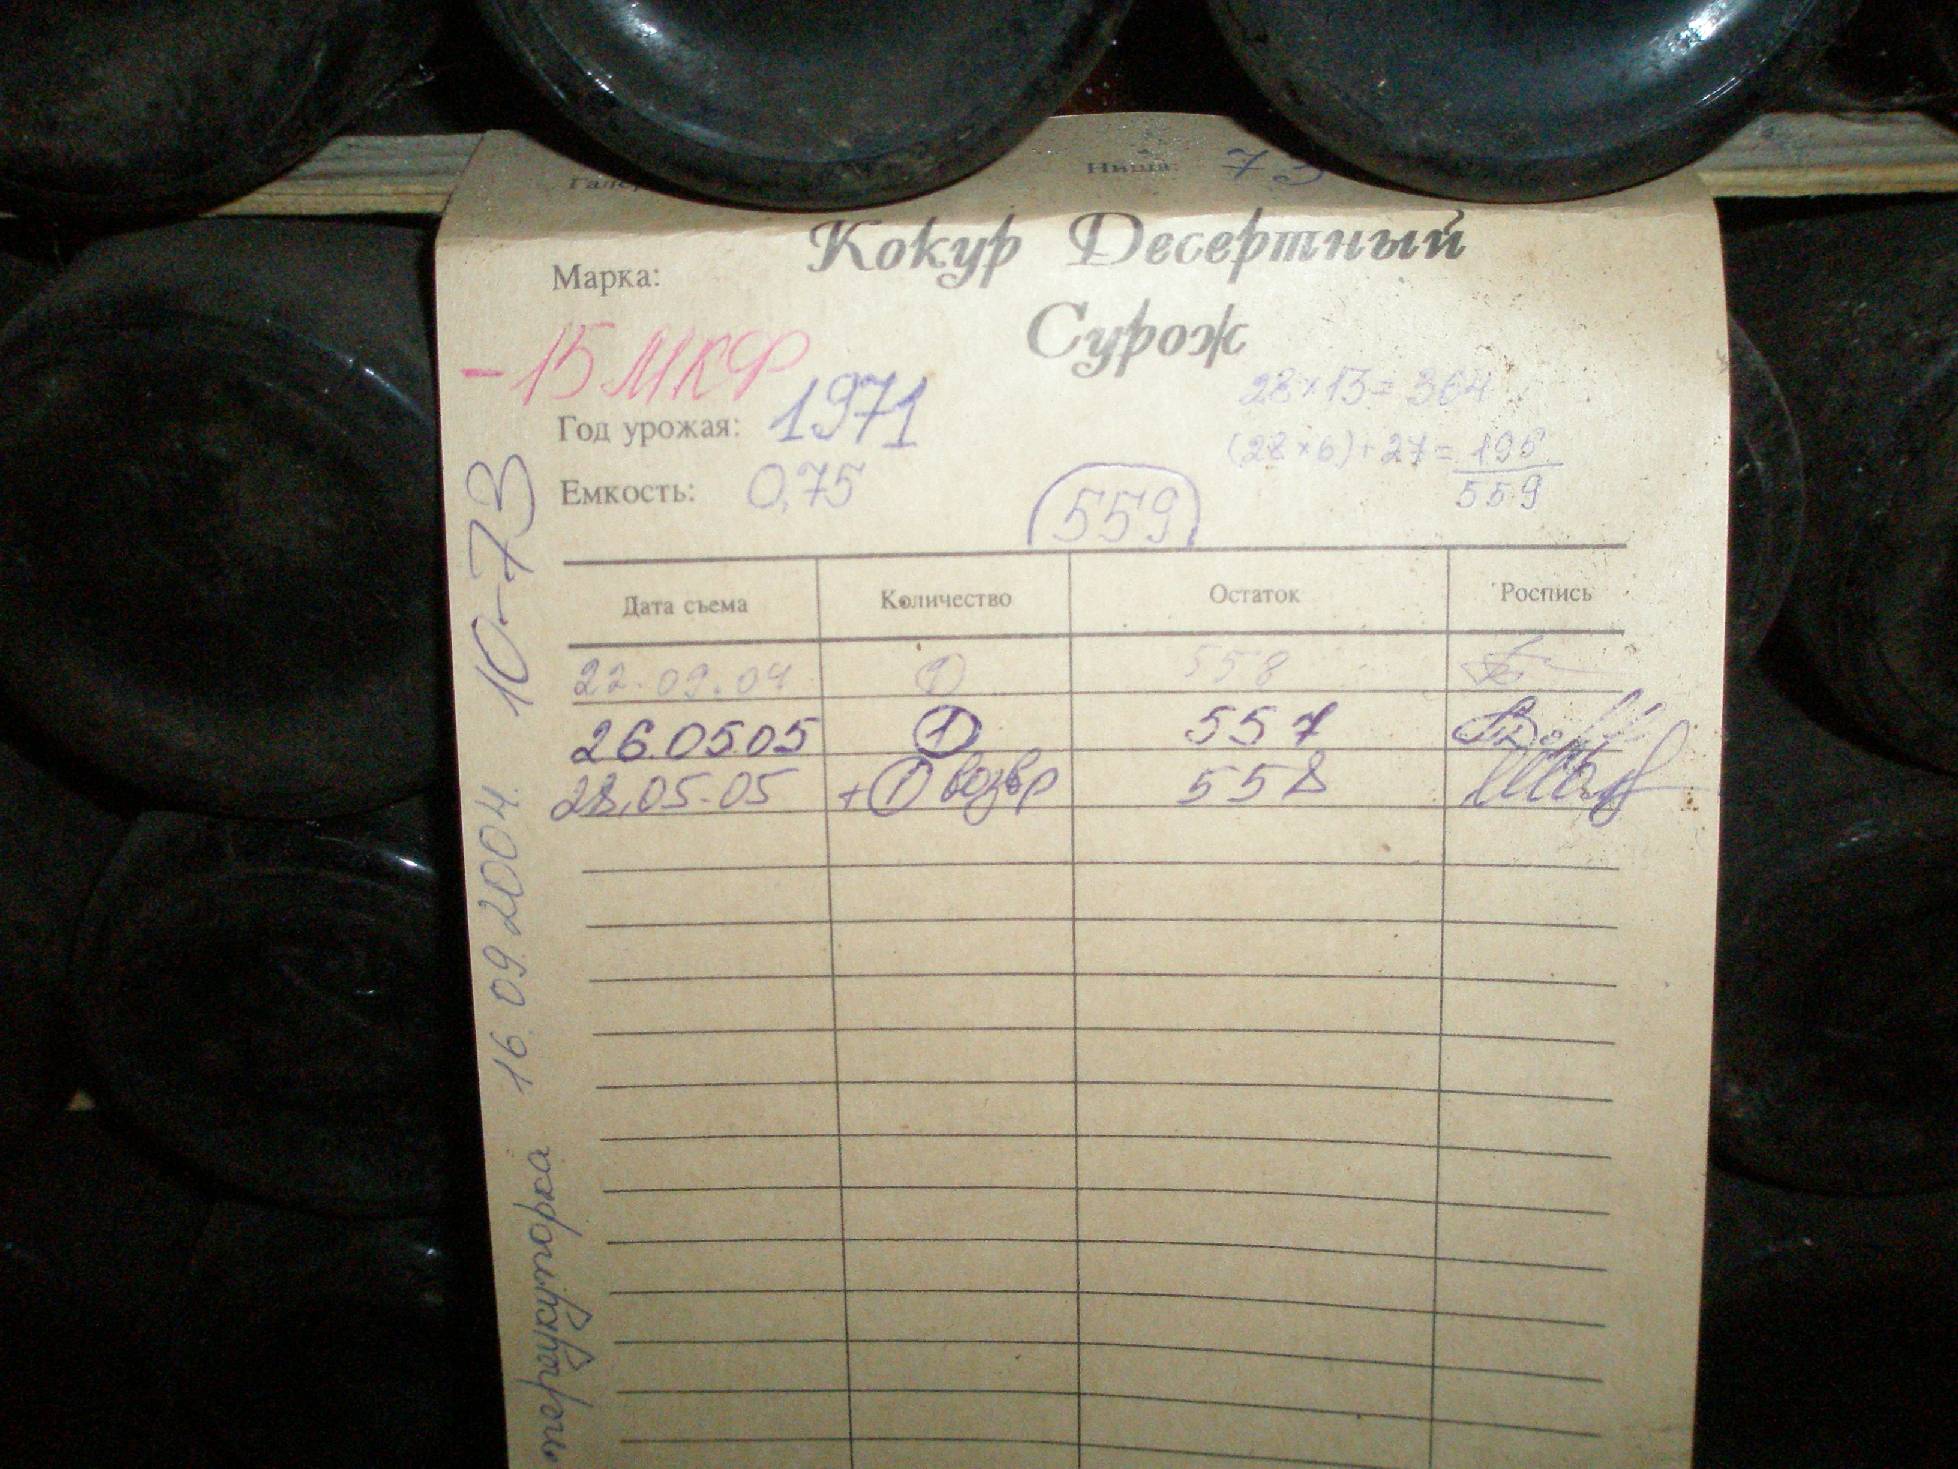 Ниша: 73
Кокур Десертный
Марка:
Сурож
-15 МКФ
28×13=364
Год урожая: 1971
(28×6)+27=195
Емкость: 0,75
559
559
Дата съема Количество Остаток Роспись
22.09.04 1 558
26.05.05 1 557
28.05.05 +1 возвр 558
перекупорка 16.09.2004. 10-73